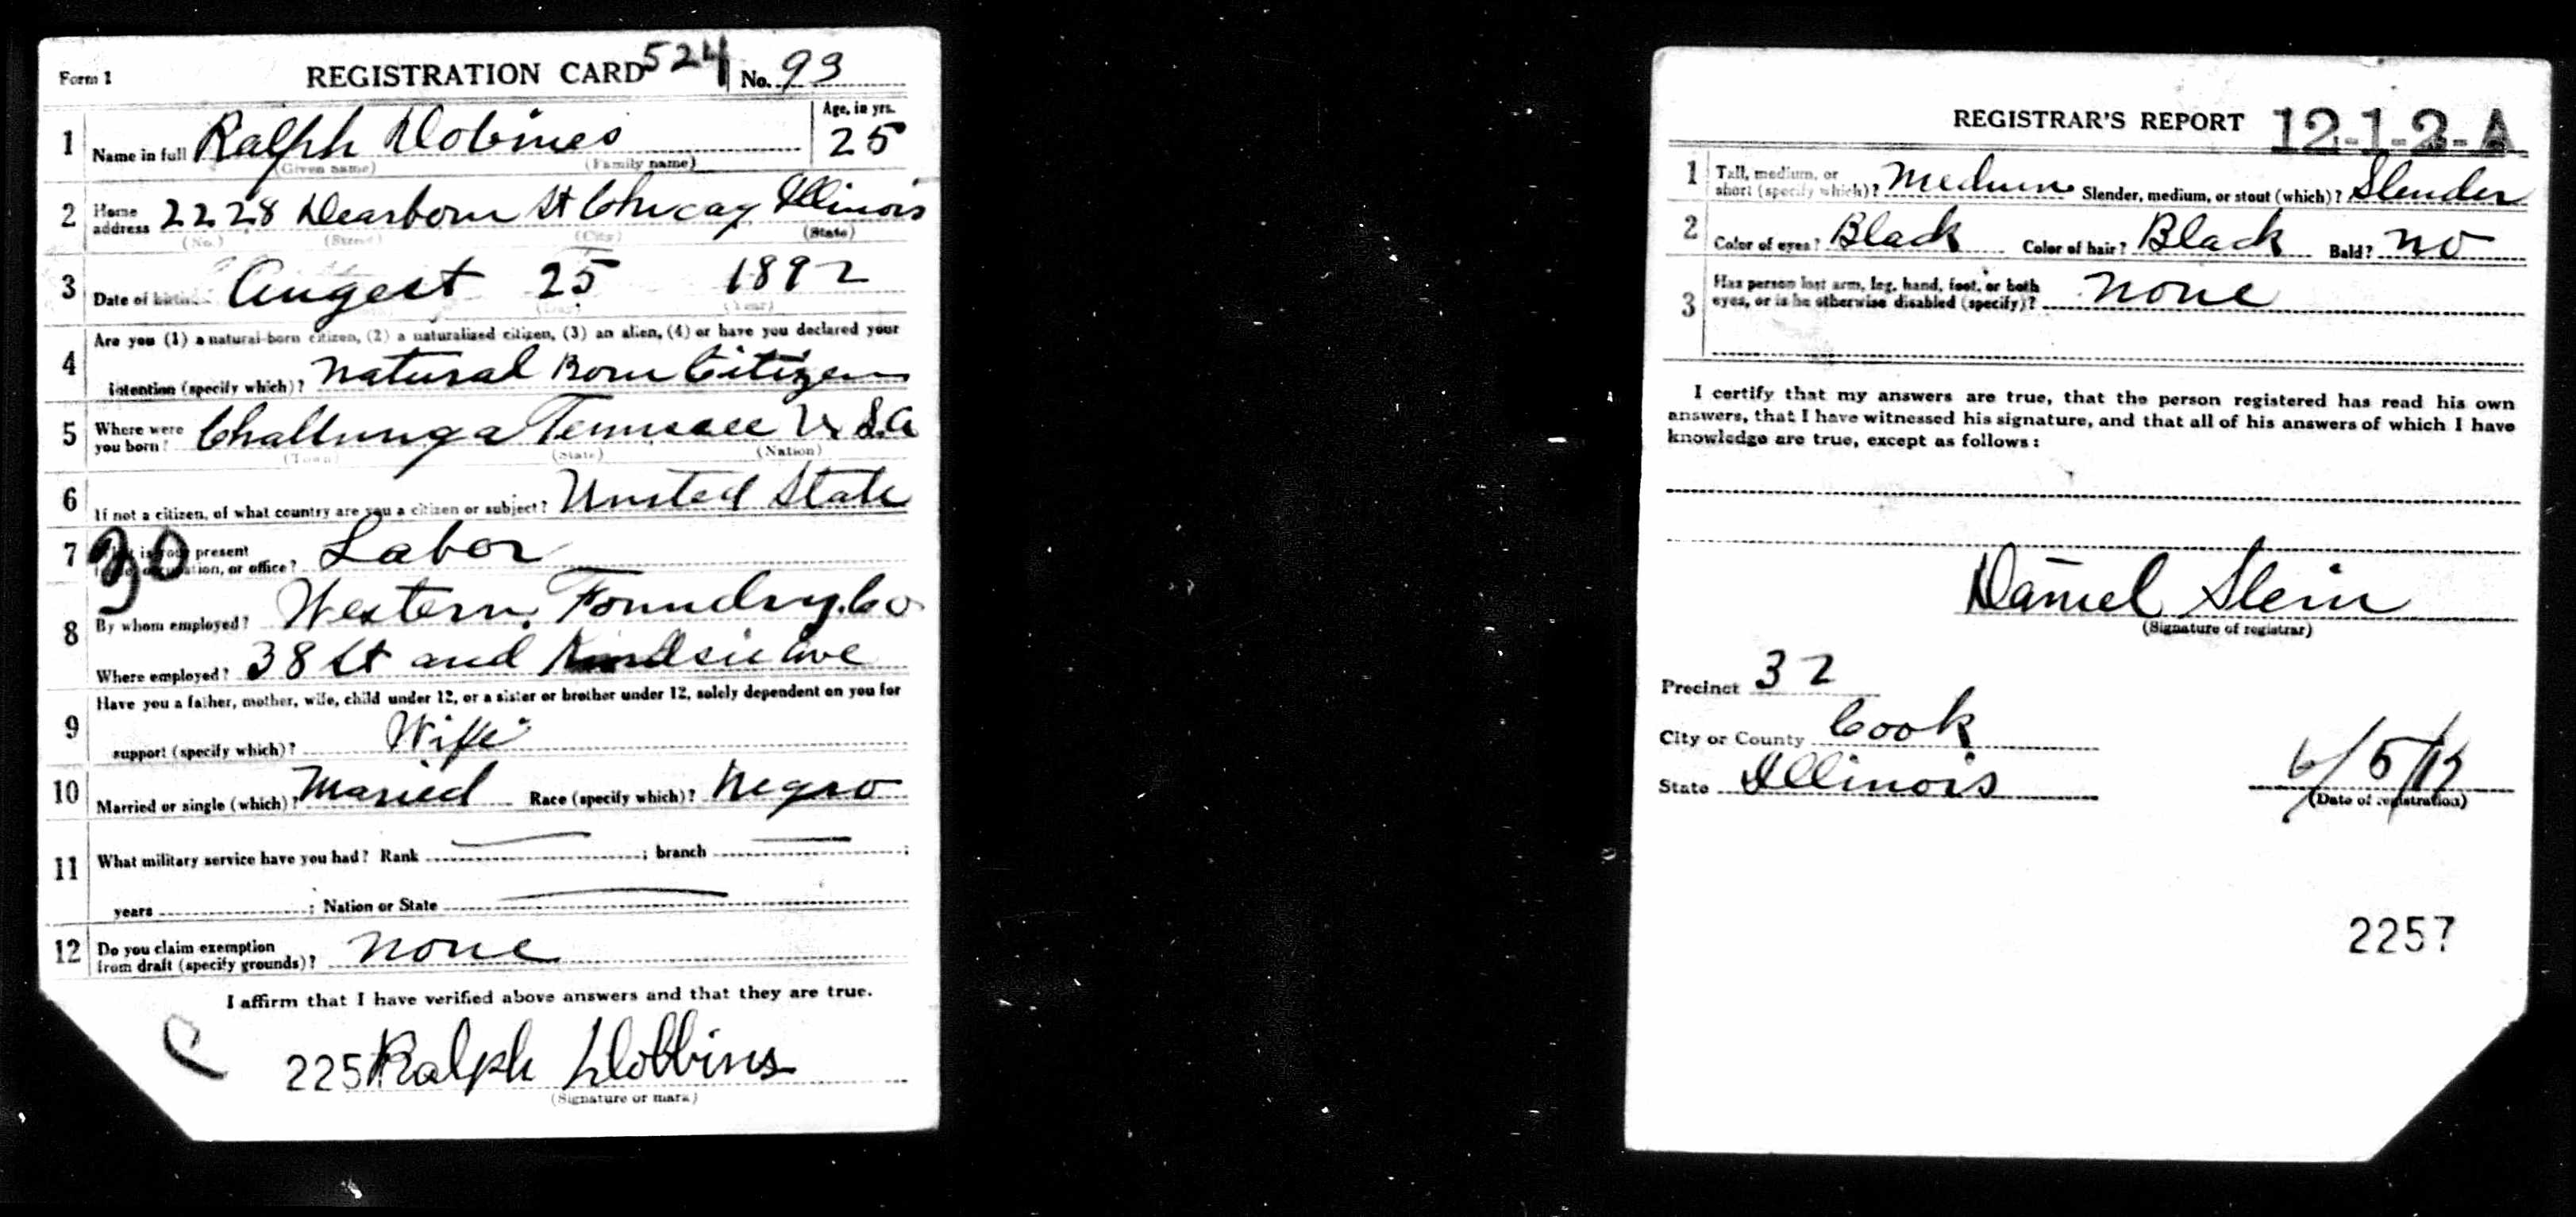 Form 1 REGISTRATION CARD 524 No. 93
1 Name in full Ralph Dobines Age, in yrs. 25
(Given name) (Family name)
2 Home address 2228 Dearborn St Chicag Illinois
(No.) (Street) (City) (State)
3 Date of birth Augest 25 1892
(Day) (Year)
4 Are you (1) a natural-born citizen, (2) a naturalized citizen, (3) an alien, (4) or have you declared your
intention (specify which)? Natural Born Citizen
5 Where were you born? Challunga Tennssee U S.A
(Town) (State) (Nation)
6 If not a citizen, of what country are you a citizen or subject? United State
7 30 present
or office? Labor
8 By whom employed? Western Foundry. Co
Where employed? 38 St and ave
9 Have you a father, mother, wife, child under 12, or a sister or brother under 12, solely dependent on you for
support (specify which)? Wife
10 Married or single (which)? Maried Race (specify which)? Negro
11 What military service have you had? Rank ; branch ;
years ; Nation or State
12 Do you claim exemption
from draft (specify grounds)? None
I affirm that I have verified above answers and that they are true.
225 Ralph Dobbins
(Signature or mark)
REGISTRAR'S REPORT 12-1-2-A
1 Tall, medium, or
short (specify which)? Medium Slender, medium, or stout (which)? Slender
2 Color of eyes? Black Color of hair? Black Bald? No
3 Has person lost arm, leg, hand, foot, or both
eyes, or is he otherwise disabled (specify)? None
I certify that my answers are true, that the person registered has read his own
answers, that I have witnessed his signature, and that all of his answers of which I have
knowledge are true, except as follows:
Daniel Stein
(Signature of registrar)
Precinct 32
City or County Cook
State Illinois 6/5/17
(Date of registration)
2257